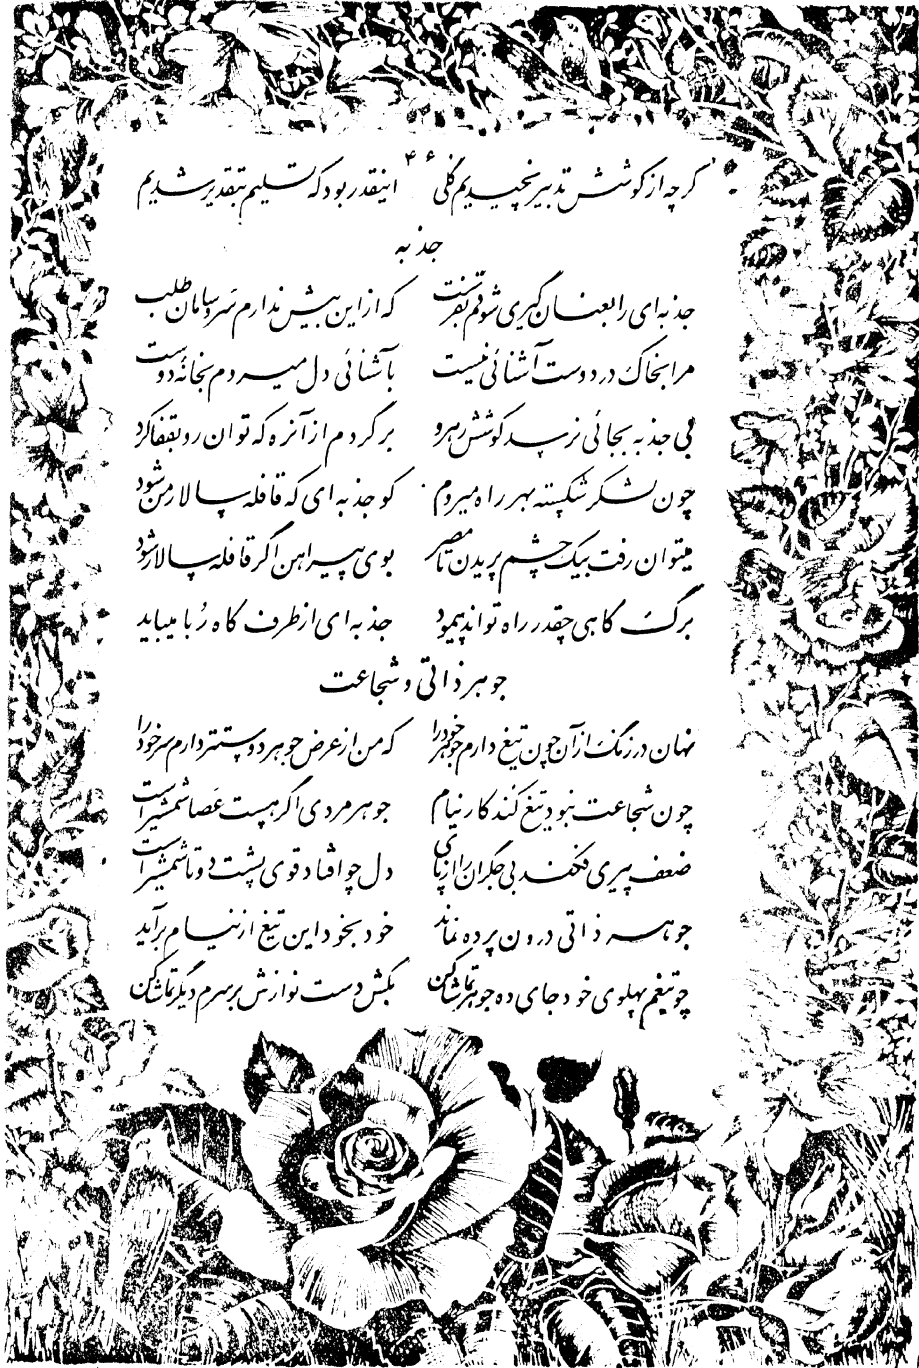 ۴۶
گرچه از کوشش تدبیر نچیدیم گلی اینقدر بود که تسلیم بتقدیر شدیم
جذبه
جذبه‌ای را بعنان گیری شوقم بفرست که از این بیش ندارم سر و سامان طلب
مرا بخاک در دوست آشنائی نیست بآشنائی دل میردم بخانهٔ دوست
بی جذبه بجائی نرسد کوشش رهرو برگردم از آنره که توان رو بقفا کرد
چون لشکر شکسته بهر راه میروم کو جذبه‌ای که قافله سالار من شود
میتوان رفت بیک چشم پریدن تا مصر بوی پیراهن اگر قافله سالار شود
برگ کاهی چقدر راه تواند پیمود جذبه‌ای از طرف کاه رُبا میباید
جوهر ذاتی و شجاعت
نهان در زنگ از آن چون تیغ دارم جوهر خود را که من از عرض جوهر دوستتر دارم سر خود را
چون شجاعت نبود تیغ کند کار نیام جوهر مردی اگر هست عَصا شمشیر است
ضعف پیری فکند بی جگران را از پای دل چو افتاد قوی پشت دوتا شمشیر است
جوهر ذاتی درون پرده نماند خود بخود این تیغ از نیام برآید
چو تیغم پهلوی خود جای ده جوهر تماشا کن بکش دست نوازش بر سرم دیگر تماشا کن